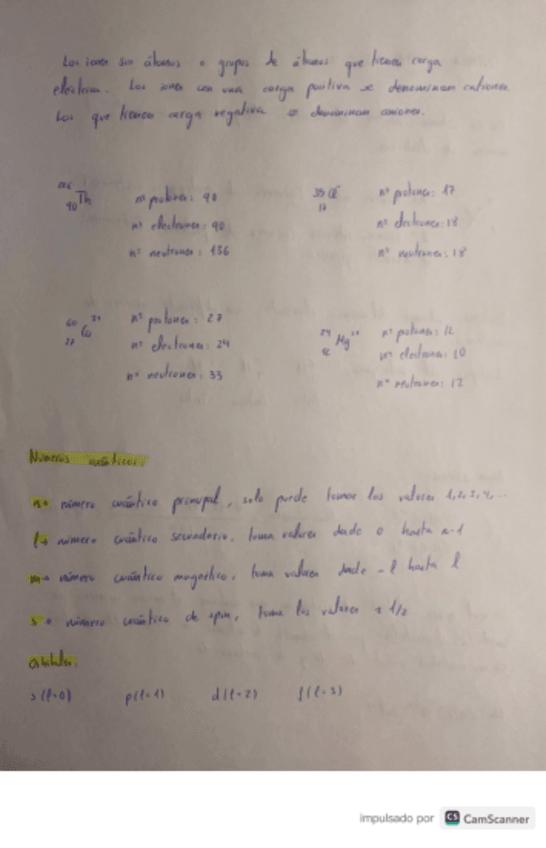 Los iones son átomos o grupos de átomos que tienen carga
eléctrica. Los iones con una carga positiva se denominan cationes
Los que tienen carga negativa se denominan aniones.
226 90 Th nº protones: 90
nº electrones: 90
nº neutrones: 136
35 17 Cl⁻ nº protones: 17
nº electrones: 18
nº neutrones: 18
60 27 Co ³⁺ nº protones: 27
nº electrones: 24
nº neutrones: 33
24 12 Mg ²⁺ nº protones: 12
nº electrones: 10
nº neutrones: 12
Números cuánticos:
n → número cuántico principal, solo puede tomar los valores 1, 2, 3, 4, ...
l → número cuántico secundario, toma valores desde 0 hasta n-1
m → número cuántico magnético, toma valores desde -l hasta l
s → número cuántico de spin, toma los valores ± 1/2
Orbitales:
s (l=0) p (l=1) d (l=2) f (l=3)
impulsado por CS CamScanner